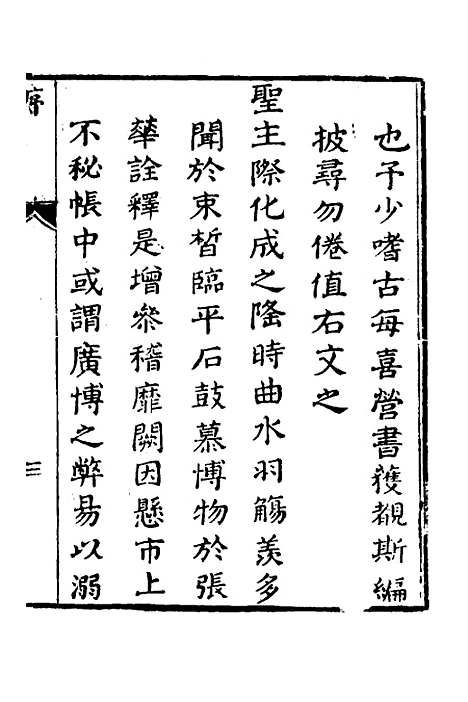 也予少嗜古每喜營書獲覩斯編
披尋勿倦值右文之
聖主際化成之隆時曲水羽觴羨多
聞於束晳臨平石鼓慕博物於張
華詮釋是增叅稽靡闕因懸市上
不秘帳中或謂廣博之弊易以溺
序
三